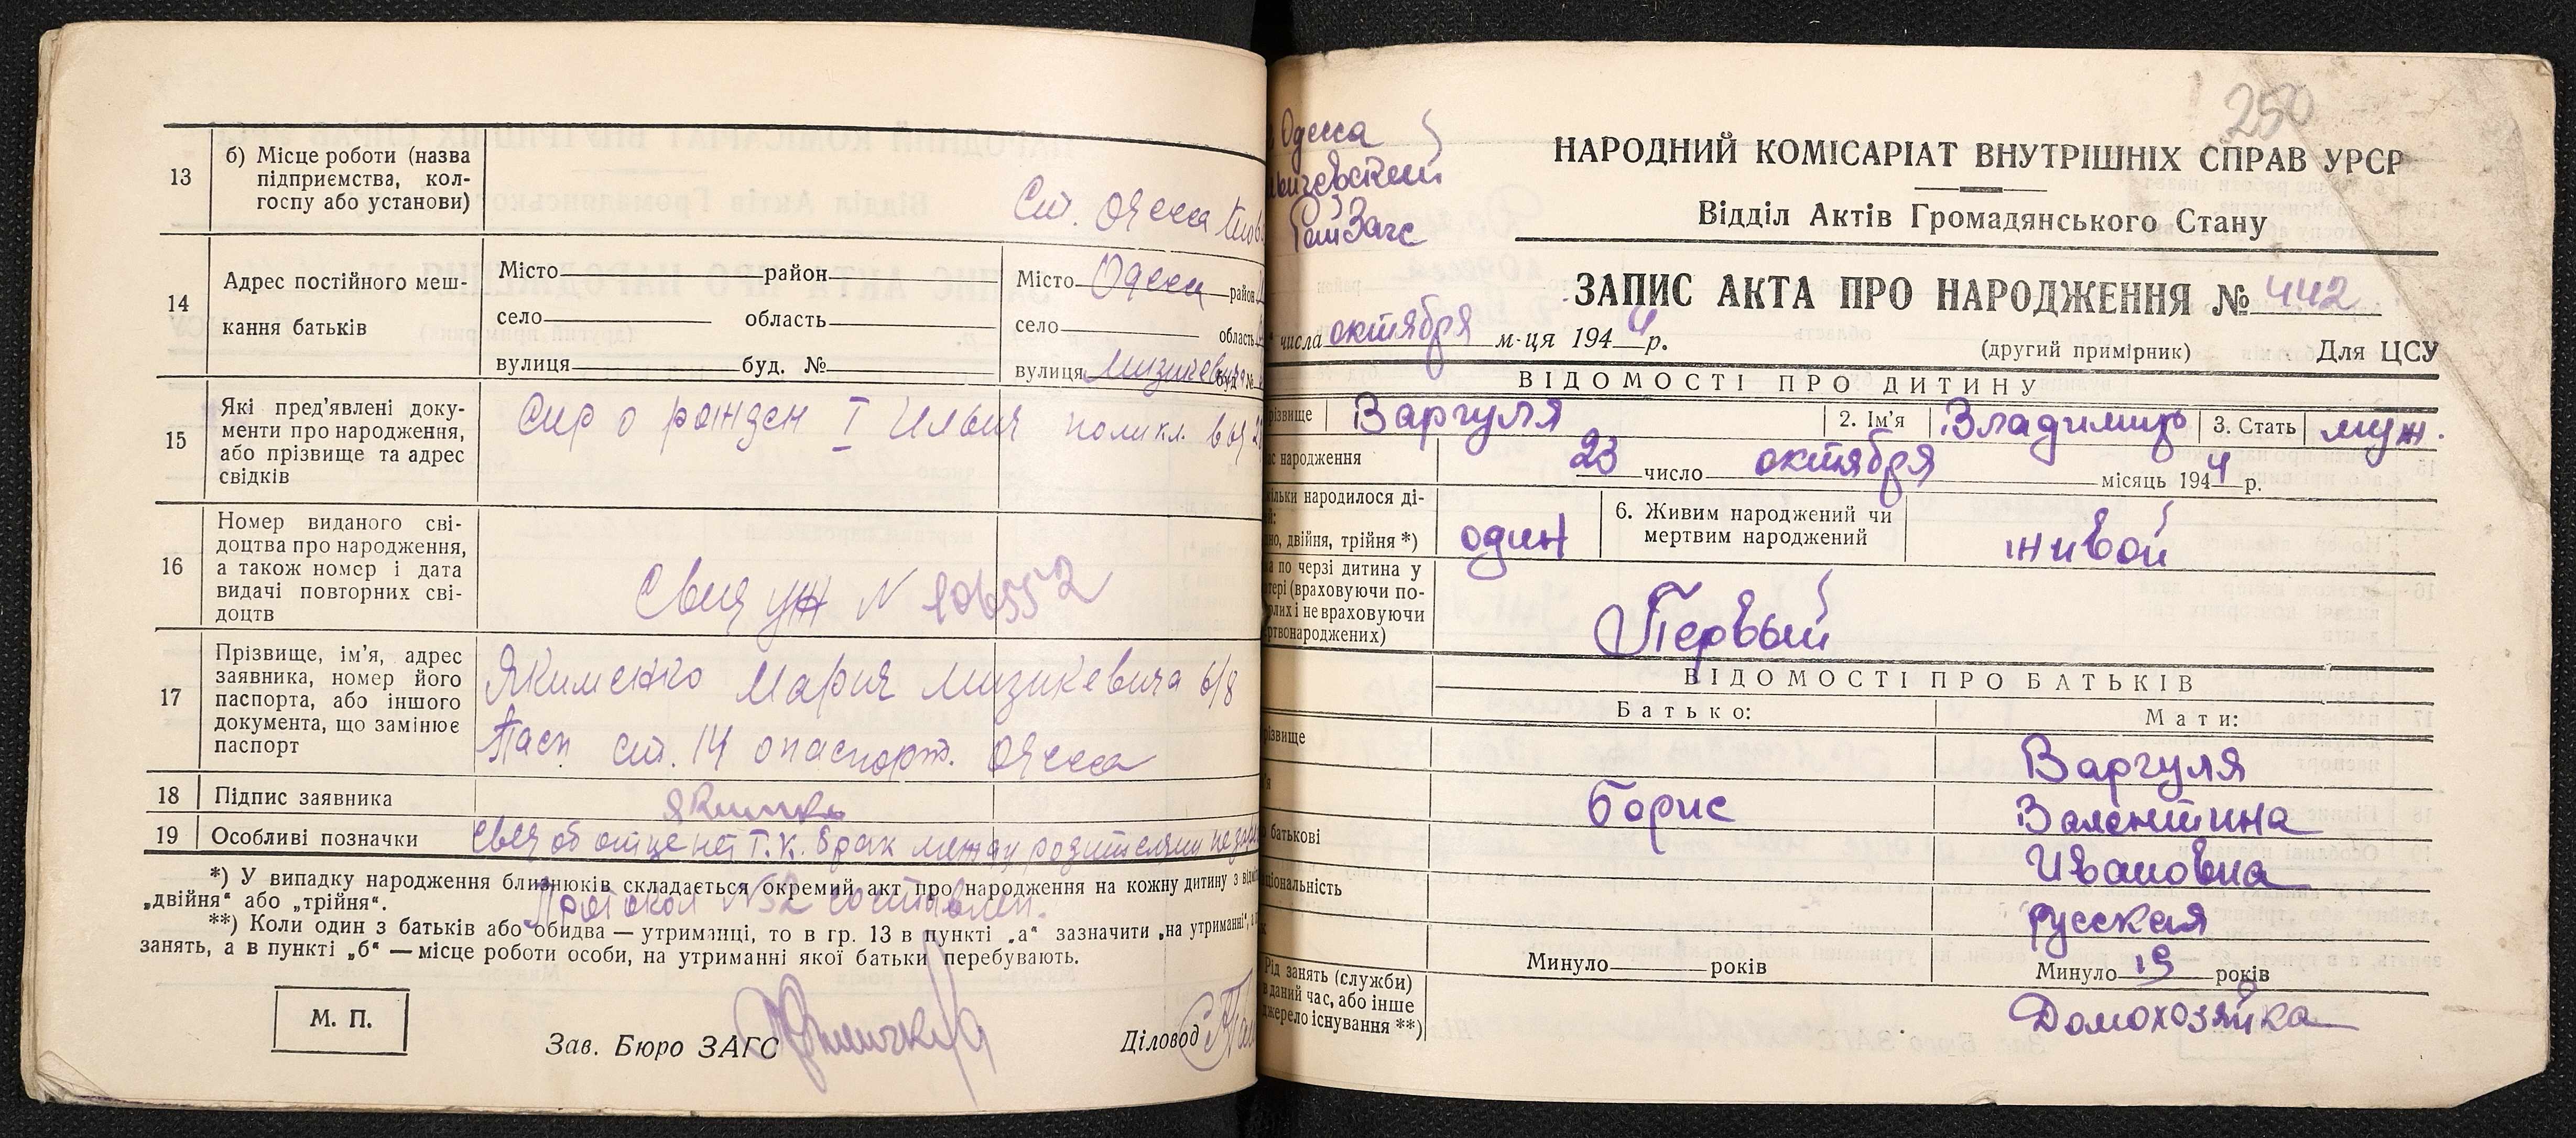 13
б) Місце роботи (назва
підприємства, кол-
госпу або установи)
Ст. Одесса
14
Адрес постійного меш-
кання батьків
Місто район
село область
вулиця буд. №
Місто Одесса район
село область
вулиця Мизикевича буд №
15
Які пред’явлені доку-
менти про народження,
або прізвище та адрес
свідків
Спр о рожден I Ильич поликл.
16
Номер виданого сві-
доцтва про народження,
а також номер і дата
видачі повторних сві-
доцтв
УЖ N 106552
17
Прізвище, ім’я, адрес
заявника, номер його
паспорта, або іншого
документа, що замінює
паспорт
Якименко Мария Мизикевича 6/8
Пасп ст. 14 о паспорт. Одесса
18
Підпис заявника
19
Особливі позначки
Свед об отце нет т.к. брак между родителями не
Протокол N 52 составлен.
*) У випадку народження близнюків складається окремий акт про народження на кожну дитину з
„двійня“ або „трійня“.
**) Коли один з батьків або обидва — утриманці, то в гр. 13 в пункті „а“ зазначити „на утриманні“,
занять, а в пункті „б“ — місце роботи особи, на утриманні якої батьки перебувають.
М. П.
Зав. Бюро ЗАГС
Діловод
250
Одесса
ьичевский
РайЗагс
НАРОДНИЙ КОМІСАРІАТ ВНУТРІШНІХ СПРАВ УРСР
Відділ Актів Громадянського Стану
ЗАПИС АКТА ПРО НАРОДЖЕННЯ № 442
числа октября м-ця 1944 р.
(другий примірник) Для ЦСУ
ВІДОМОСТІ ПРО ДИТИНУ
різвище Варгуля 2. Ім’я Владимир 3. Стать муж.
ас народження 23 число октября місяць 1944 р.
ільки народилося ді-
ей:
но, двійня, трійня *)
один
6. Живим народжений чи
мертвим народжений
живой
ка по черзі дитина у
тері (враховуючи по-
рлих і не враховуючи
ртвонароджених)
Первый
ВІДОМОСТІ ПРО БАТЬКІВ
Батько: Мати:
різвище Варгуля
м’я Борис Валентина
о батькові Ивановна
ціональність русская
к Минуло років Минуло 19 років
Рід занять (служби)
в даний час, або інше
джерело існування **)
Домохозяйка